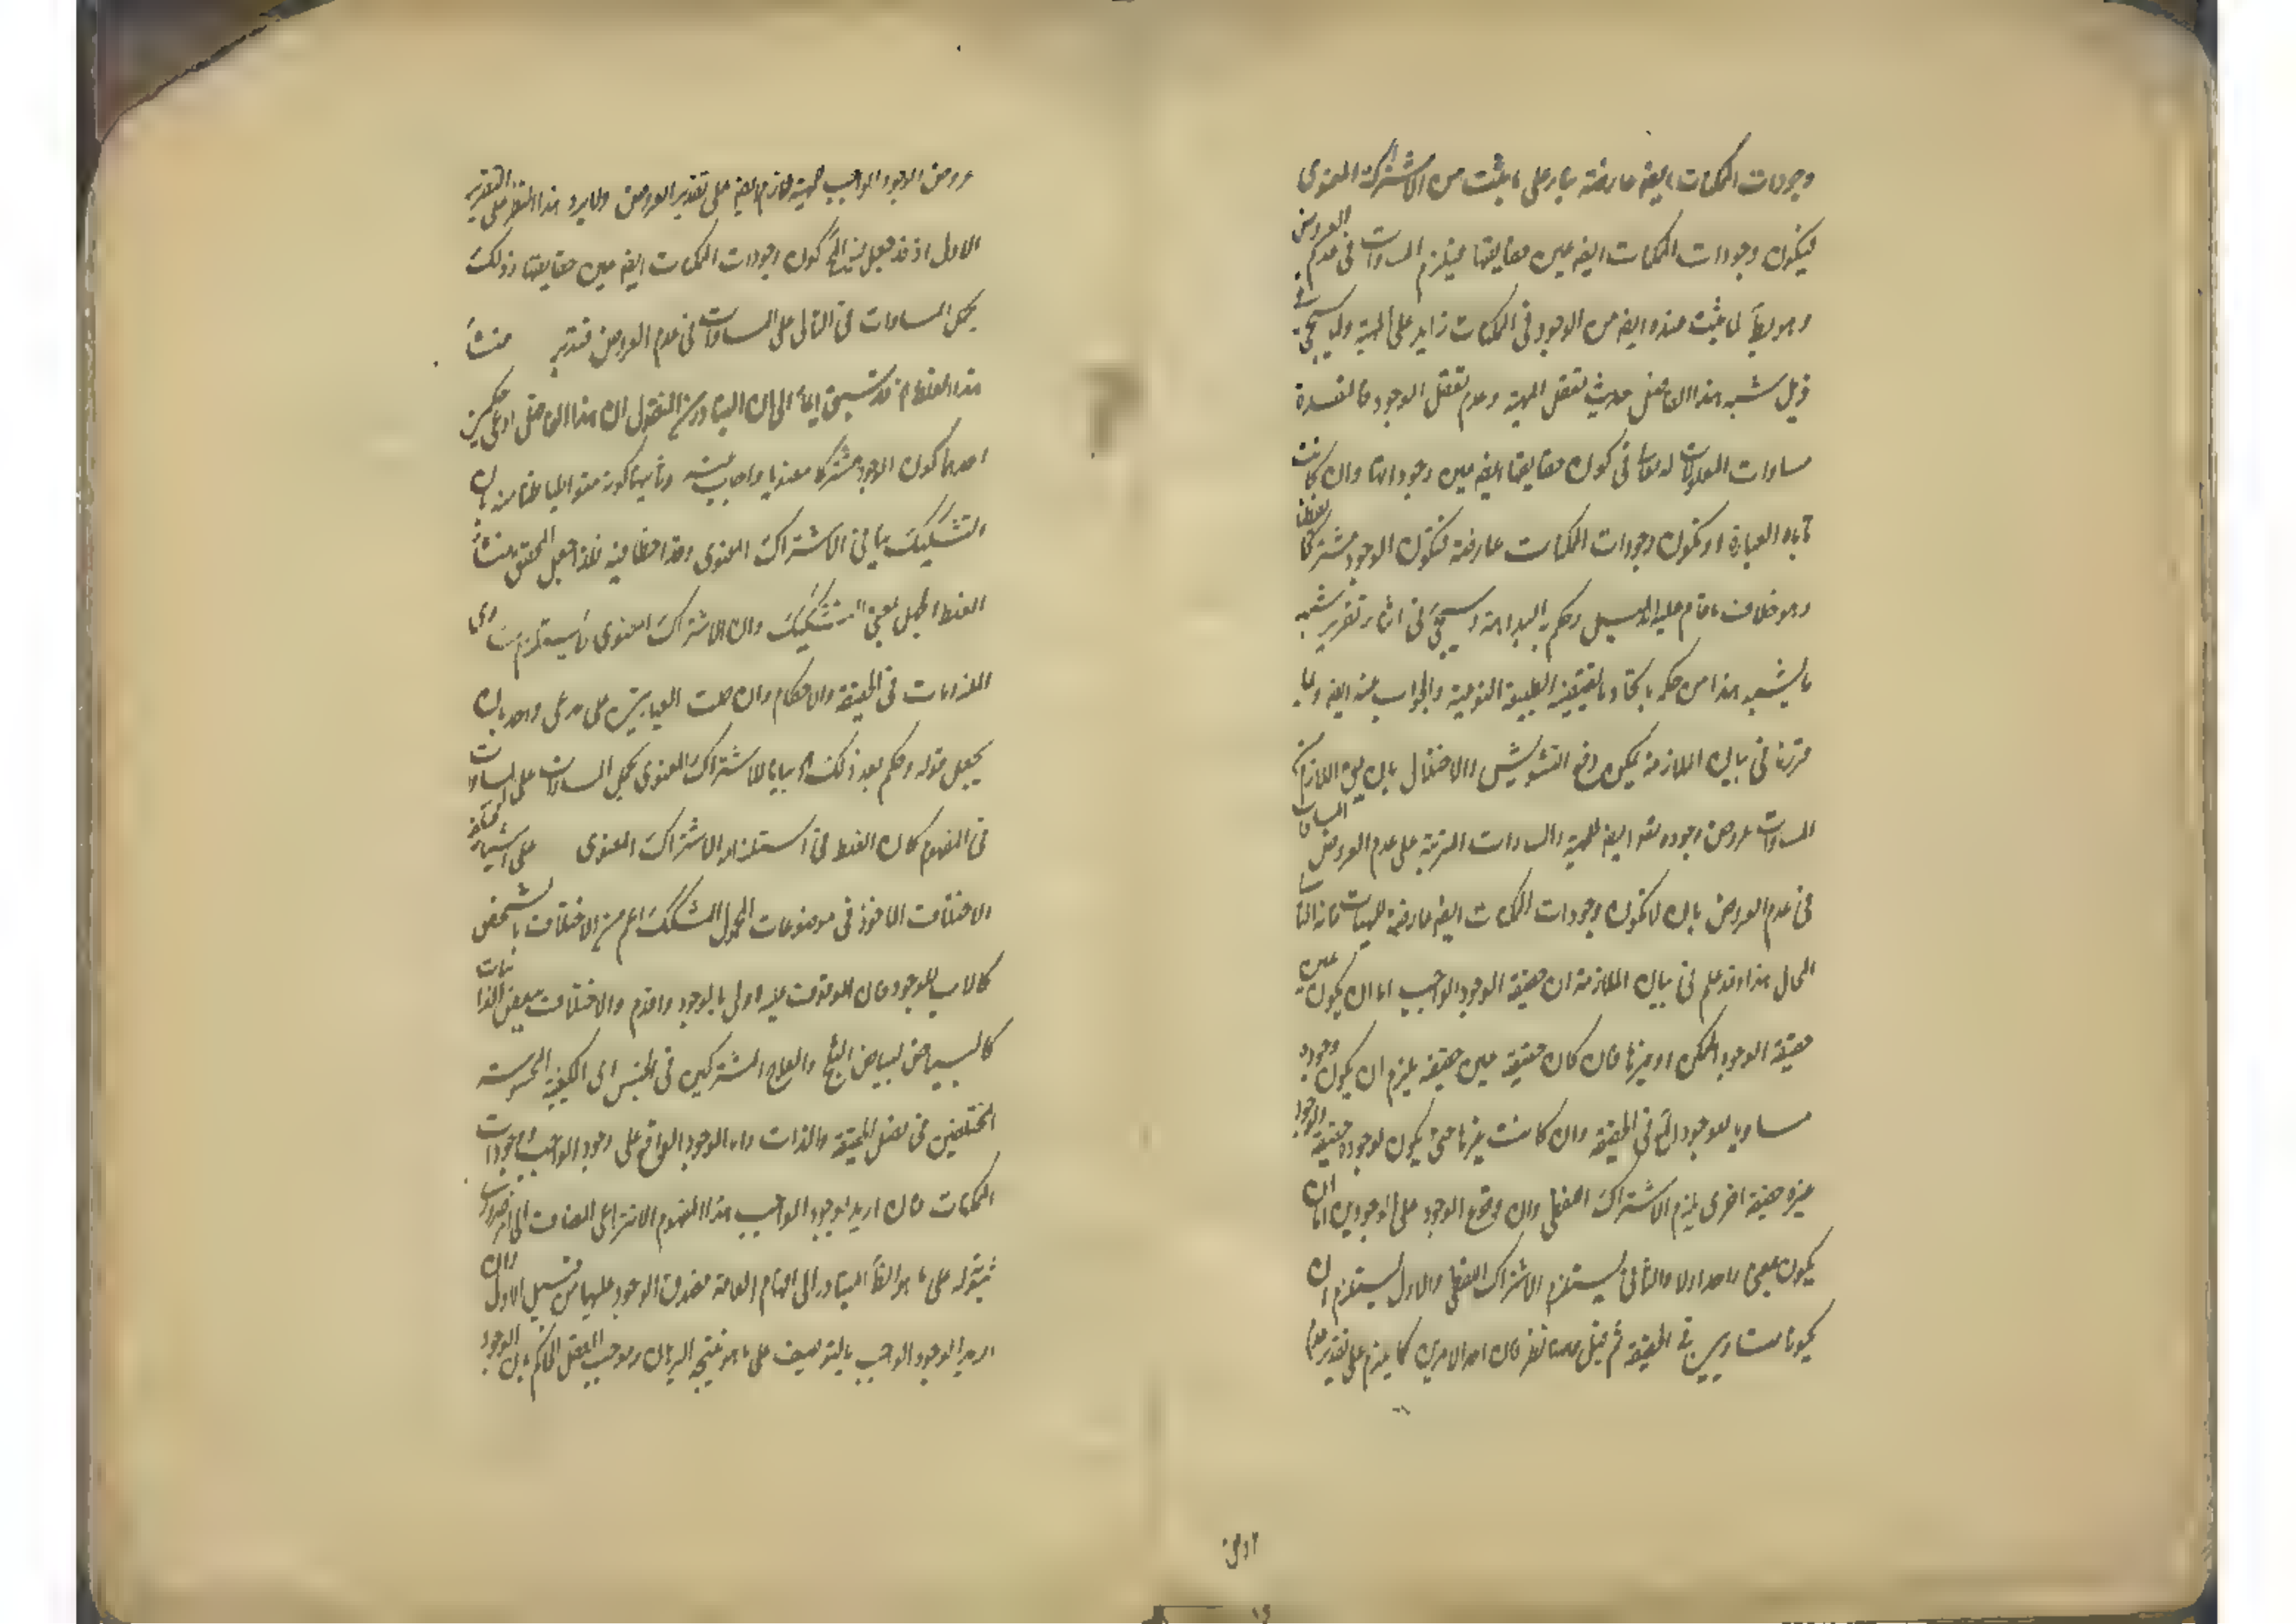 وجودات الممكنات ايضه عارضة بناء على ما ثبت من الاشتراك المعنوى
ليكون وجودات الممكنات ايضه عين حقايقها فيلزم المساوات فى عدم العروض
وهو بط لما ثبت عنده ايضه من الوجود فى الممكنات زايد على المهية ولما سيجئ فى
ذيل شبه هذا الفاضل حديث تعقل المهية وعدم تعقل الوجود فالمفسدة
مساوات المعلولات له تعالى فى كون حقايقها ايضه عين وجوداتها وان كانت
تاباه العبارة او تكون وجودات الممكنات عارضة فتكون الوجود مشتركا لفظا
وهو خلاف ما قام عليه الدليل وحكم به البداهة وسيجئ فى اثناء تقرير شبه
ما يشيد هذا من حكمه باتحاد ما يقتضيه الطبيعة النوعية والجواب عنه ايضه ولما
قررنا فى بيان الملازمة يمكن دفع التشويش والاختلال بان يق اللازم
المساوات عروض وجوده تعه ايضه للمهية والمساوات المرتبة على عدم العروض المساوات
فى عدم العروض بان لا تكون وجودات الممكنات ايضه عارضة للمهيات
المحال هذا وقد علم فى بيان الملازمة ان حقيقة الوجود الواجب اما ان يكون عين
حقيقة الوجود الممكن او غيرها فان كان حقيقة عين حقيقة يلزم ان يكون وجوده
مساويا للوجود الخ فى الحقيقة وان كانت غيرها حتى يكون لوجوده حقيقة ولوجود
غيره حقيقة اخرى يلزم الاشتراك اللفظى وان وقوع الوجود على الوجودين اما ان
يكون بمعنى واحد اولا والثانى يستلزم الاشتراك اللفظى والاول يستلزم ان
يكونا متساويين فى الحقيقة ثم قيل ههنا نظر فان احد الامرين كما يلزم على تقدير عدم
عروض
عروض الوجود الواجب لمهية لازم ايضه على تقدير العروض ولا يرد هذا النظر على التقدير
الاول اذ قد جعل كون وجودات الممكنات ايضه عين حقايقها وذلك
يحمل المساوات فى التالى على المساوات فى عدم العروض فتدبر منشأ
هذا الغلط قد سبق ايماء الى ان المتبادر من المنقول ان هذا الفاضل ادعى حكمين
احدهما كون الوجود مشتركا معنويا واصاب فيه وثانيهما كونه متواطيا ظنا منه بان
التشكيك ينافى الاشتراك المعنوى وقد اخطا فيه فلذا جعل المحقق منشأ
الغلط الجهل بمعنى التشكيك وان الاشتراك المعنوى لا يستلزم تساوى
الملزومات فى الحقيقة والاحكام وان حملت العبارتين على مدعى واحد بان
يجعل قوله وحكم بعد ذلك بيانا للاشتراك المعنوى بحمل المساوات على المساوات
فى المفهوم كان الغلط فى استلزام الاشتراك المعنوى على اشياء مختلفة
الاختلاف الماخوذ فى موضوعات المحمول المشكك اعم من الاختلاف بالشخص
كالاب للوجود فان الموقوف عليه اولى بالوجود واقدم والاختلاف ببعض الذاتيات
كالبياض لبياض الثلج والعاج المشتركين فى الجنس اى الكيفية المحسوسة
المختلفين فى فصل الحقيقة والذات واما الوجود الواقع على وجود الواجب ووجودات
الممكنات فان اريد بوجود الواجب هذا المفهوم الانتزاعى المضاف الى
ثبوته له على ما هو الظ المتبادر الى افهام العامة فصدق الوجود عليهما من قبيل الاول وان
اريد الوجود الواجب بالتوصيف على ما هو نتيجة البرهان وموجب العقل الحاكم بان الوجود